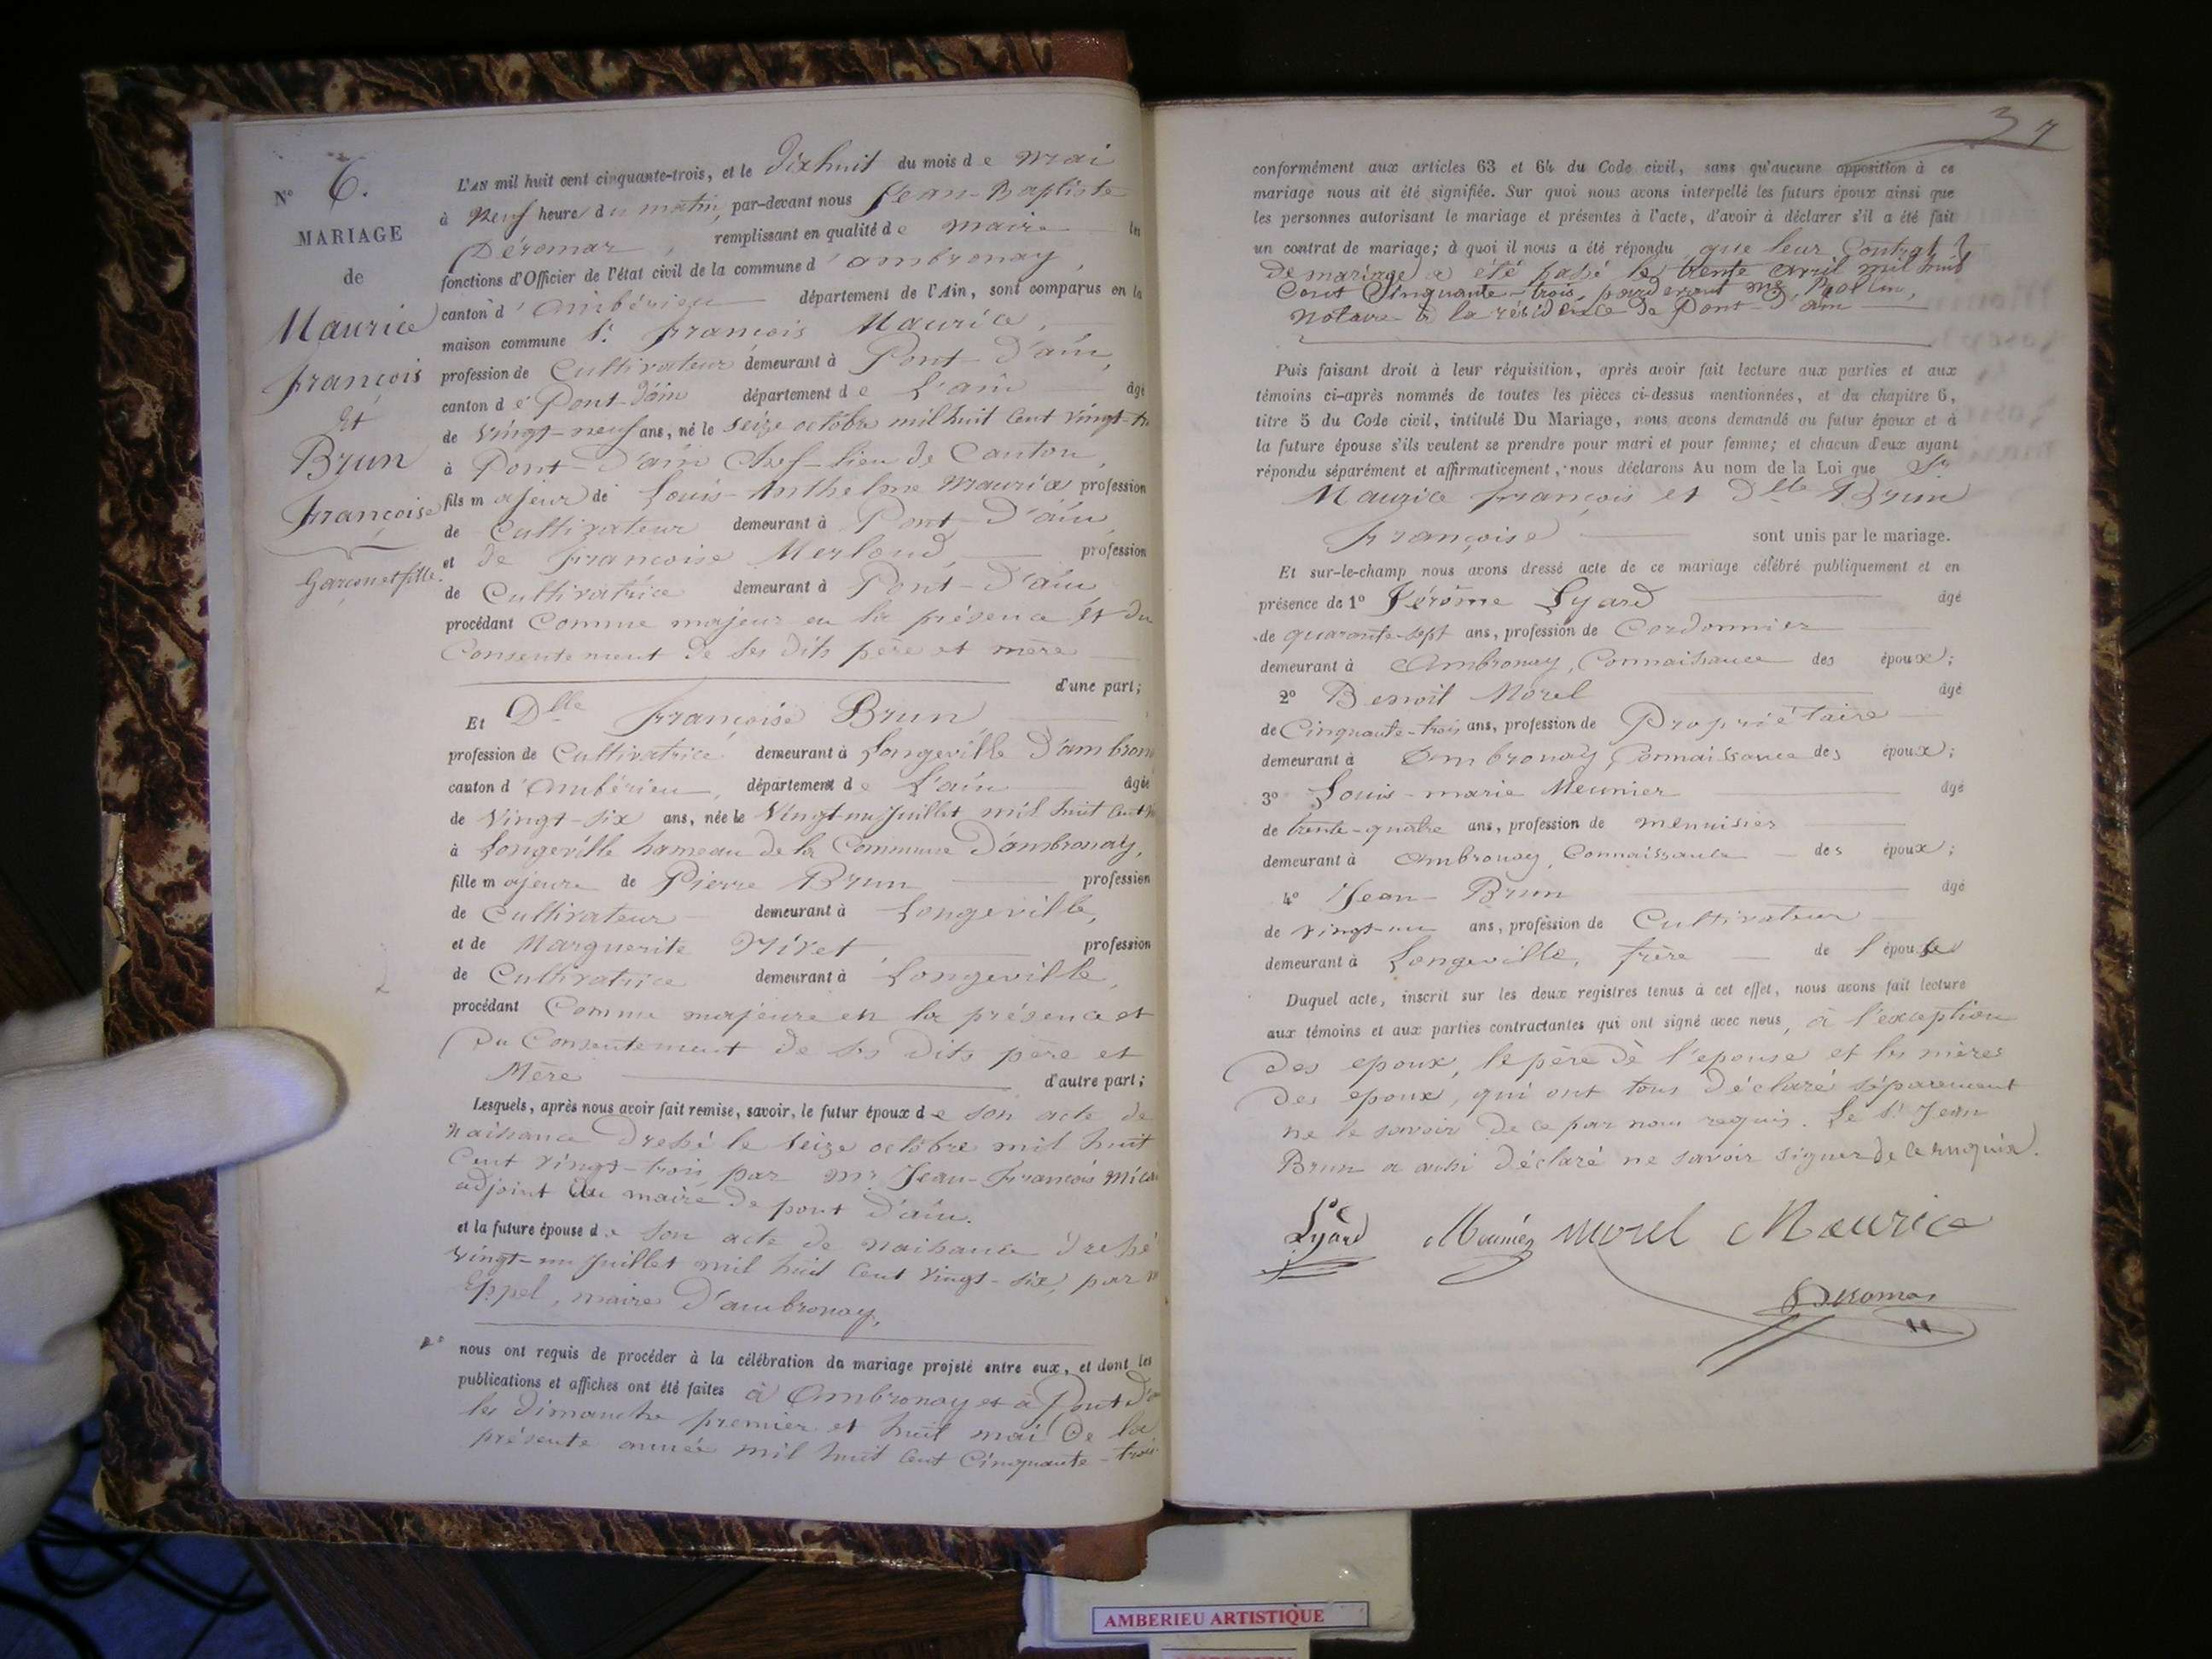 N° 6.
MARIAGE
de
Maurice
François
Et
Brun
Françoise
Garçon et fille.
L'AN mil huit cent cinquante-trois, et le Dix huit du mois de mai
à neuf heures du matin, par-devant nous Jean-Baptiste
Déromas, remplissant en qualité de maire les
fonctions d'Officier de l'état civil de la commune d'ambronay,
canton d'ambérieu département de l'Ain, sont comparus en la
maison commune Sr. François Maurice,
profession de Cultivateur demeurant à Pont-D'ain,
canton de Pont-d'ain département de L'ain âgé
de vingt-neuf ans, né le seize octobre mil huit Cent vingt-
à Pont-D'ain Chef-lieu de Canton,
fils majeur de Louis-Anthelme Maurice profession
de Cultivateur demeurant à Pont-D'ain
et de Françoise Merloud, profession
de Cultivatrice demeurant à Pont-D'ain
procédant Comme majeur en la présence et du
Consentement de ses dits père et mère
d'une part;
Et Dlle Françoise Brun
profession de Cultivatrice demeurant à Longeville D'ambron
canton d'ambérieu, département de L'ain âgée
de vingt-six ans, née le vingt-un juillet mil huit Cent
à Longeville hameau de la Commune D'ambronay,
fille majeure de Pierre Brun profession
de Cultivateur demeurant à Longeville,
et de Marguerite Nivet, profession
de Cultivatrice demeurant à Longeville,
procédant Comme majeure en la présence et
Du Consentement de ses dits père et
Mère d'autre part;
Lesquels, après nous avoir fait remise, savoir, le futur époux de son acte de
naissance Dressé le seize octobre mil huit
Cent vingt-trois, par mr. Jean-François
adjoint Au maire de pont D'ain.
et la future épouse de son acte de naissance dressé
vingt-un juillet mil huit Cent vingt-six, par
Eppel, maire D'ambronay,
nous ont requis de procéder à la célébration du mariage projeté entre eux, et dont les
publications et affiches ont été faites à Ambronay et à Pont D'a
les dimanche premier et huit mai De la
présente année mil huit Cent Cinquante-trois
37
conformément aux articles 63 et 64 du Code civil, sans qu'aucune opposition à ce
mariage nous ait été signifiée. Sur quoi nous avons interpellé les futurs époux ainsi que
les personnes autorisant le mariage et présentes à l'acte, d'avoir à déclarer s'il a été fait
un contrat de mariage; à quoi il nous a été répondu que leur Contrat
De mariage a été passé le trente avril mil huit
Cent Cinquante-trois, pardevant me,
notaire à la résidence de Pont-D'ain
Puis faisant droit à leur réquisition, après avoir fait lecture aux parties et aux
témoins ci-après nommés de toutes les pièces ci-dessus mentionnées, et du chapitre 6,
titre 5 du Code civil, intitulé Du Mariage, nous avons demandé au futur époux et à
la future épouse s'ils veulent se prendre pour mari et pour femme; et chacun d'eux ayant
répondu séparément et affirmativement, nous déclarons Au nom de la Loi que Sr
Maurice François et Dlle Brun
Françoise sont unis par le mariage.
Et sur-le-champ nous avons dressé acte de ce mariage célébré publiquement et en
présence de 1° Jérôme Lyard âgé
de quarante-sept ans, profession de Cordonnier
demeurant à Ambronay, Connaissance des époux;
2° Benoit Morel âgé
de Cinquante-trois ans, profession de Propriétaire
demeurant à Ambronay, Connaissance des époux;
3° Louis-marie Meunier âgé
de trente-quatre ans, profession de menuisier
demeurant à Ambronay, Connaissance des époux;
4° Jean Brun âgé
de vingt-un ans, profession de Cultivateur
demeurant à Longeville, frère de l'épouse
Duquel acte, inscrit sur les deux registres tenus à cet effet, nous avons fait lecture
aux témoins et aux parties contractantes qui ont signé avec nous, à l'exception
Des epoux, le père de l'epouse et les mères
Des epoux, qui ont tous déclaré séparement
ne le savoir De ce par nous requis. Le Sr Jean
Brun a aussi déclaré ne savoir signer de ce requis.
Lyard Meunier Morel Maurice
Deromas
AMBERIEU ARTISTIQUE